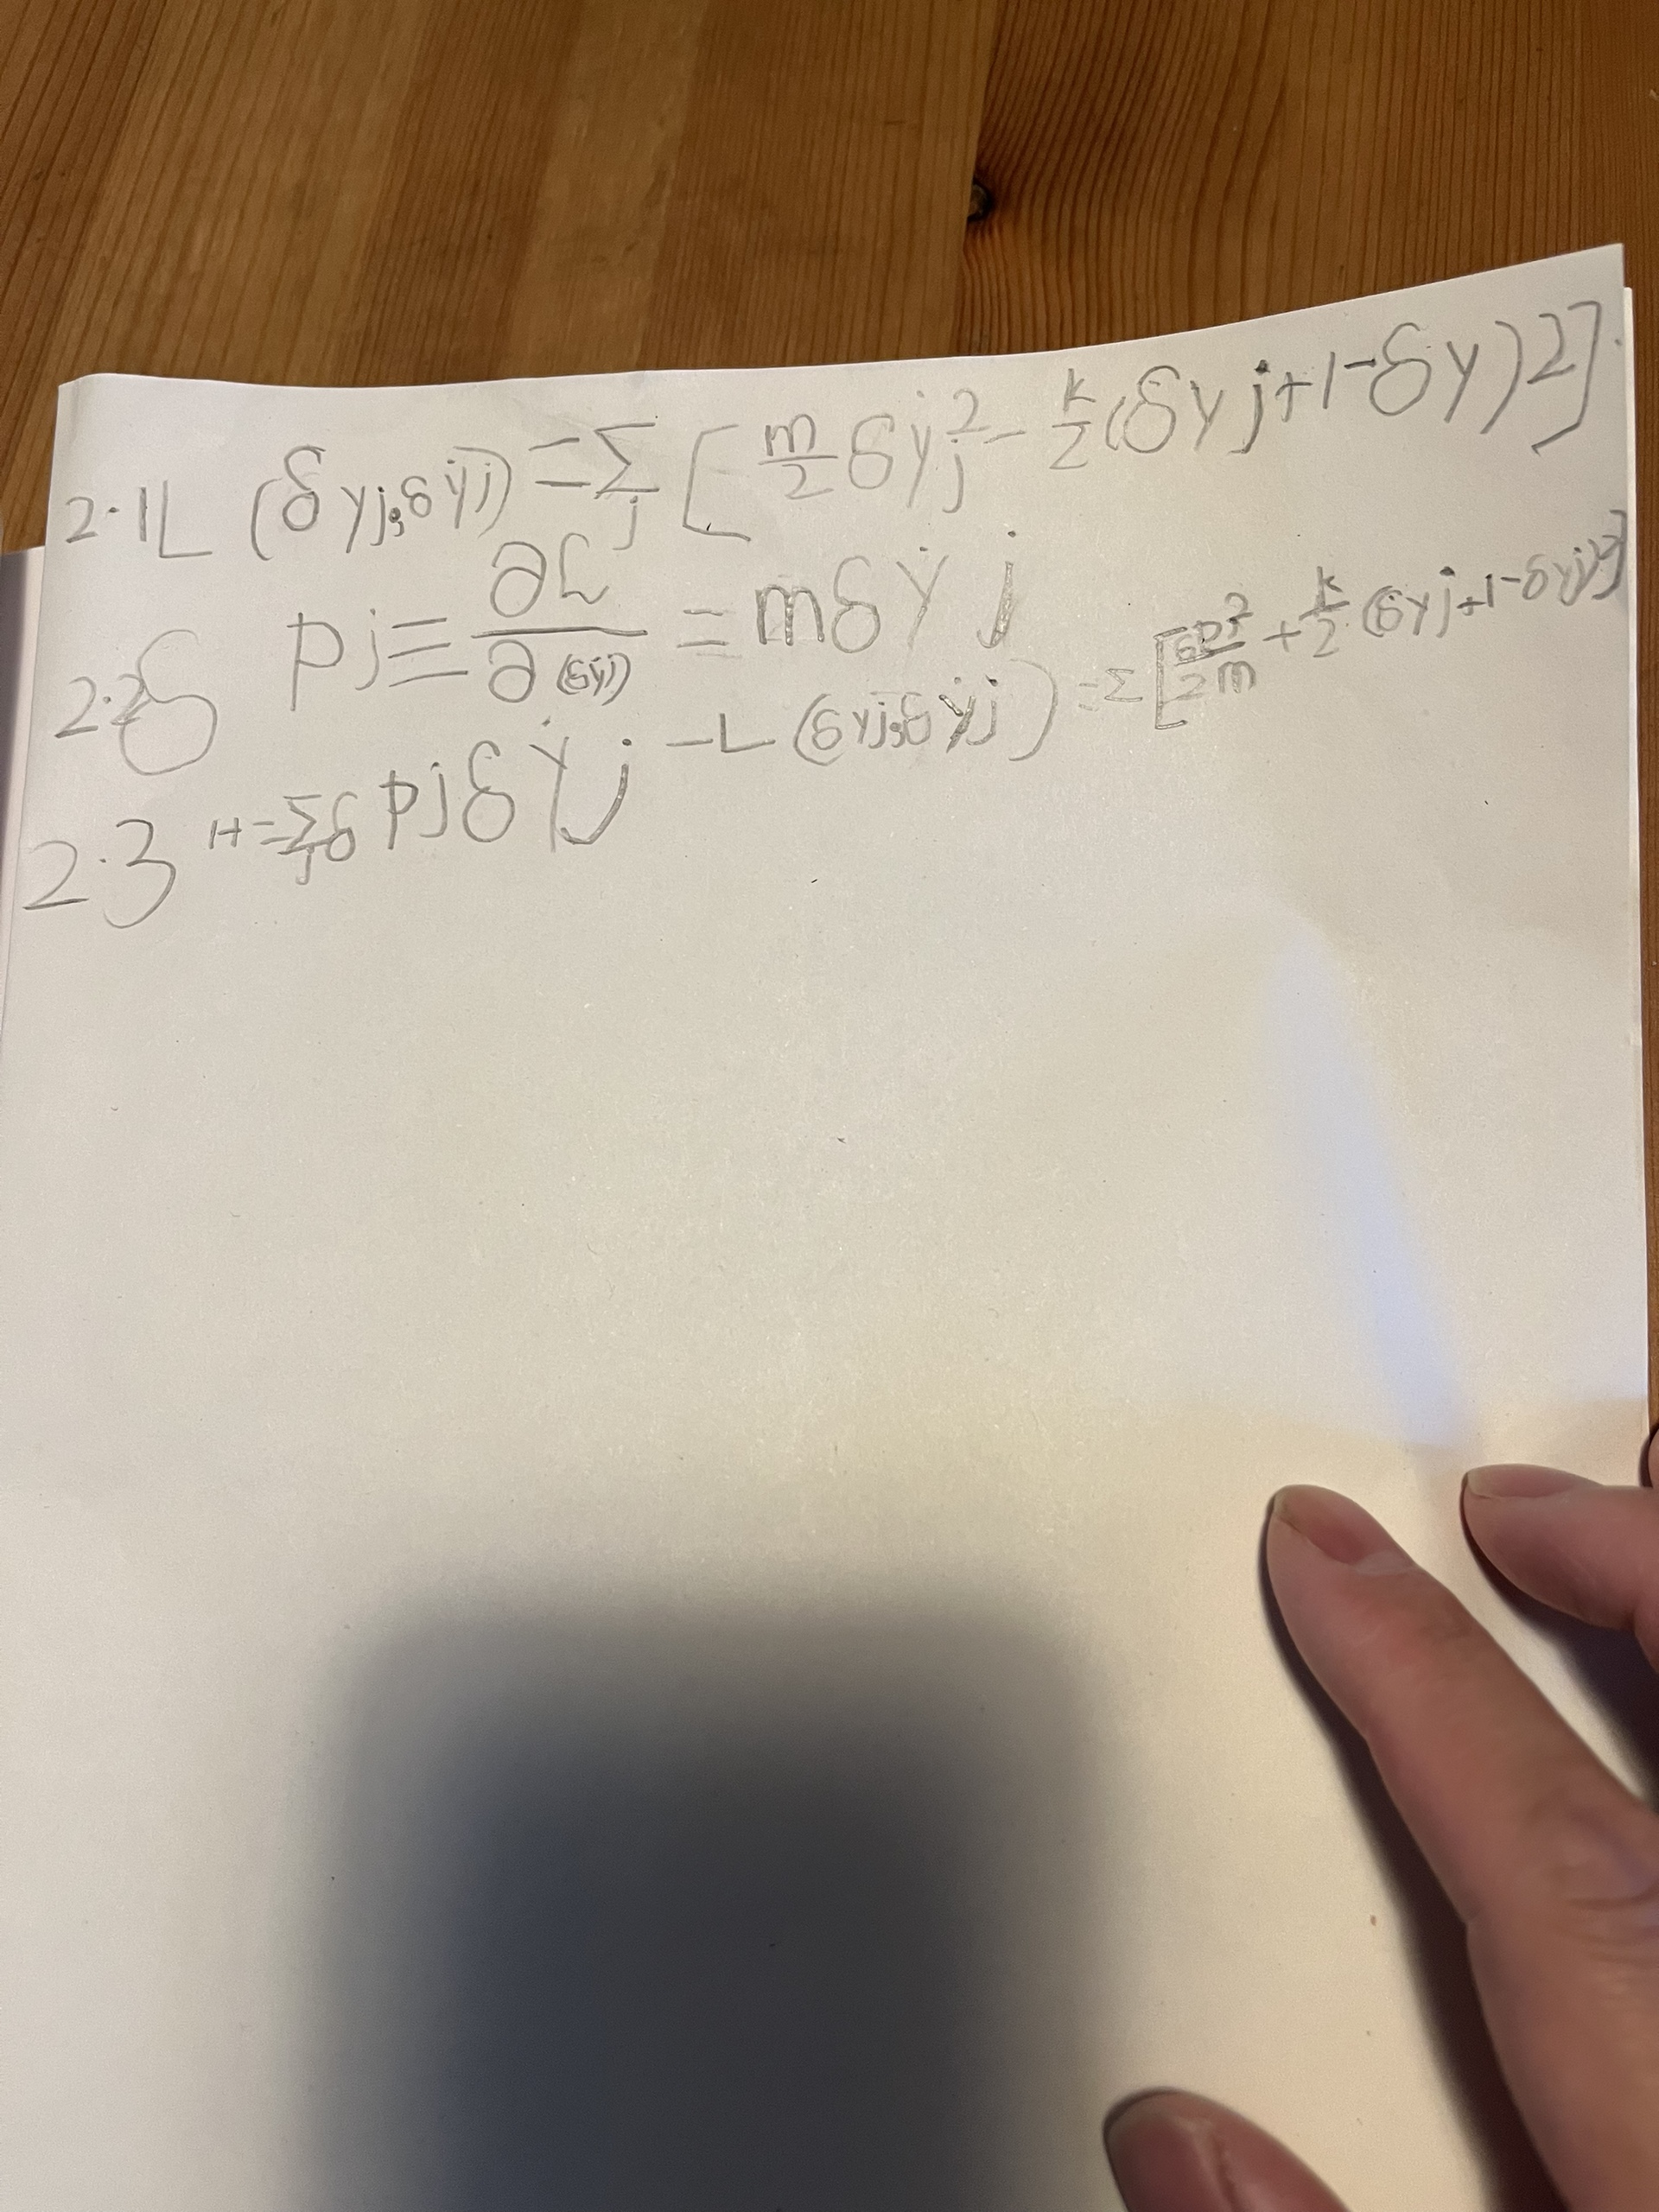 2.1 L (δyj;δẏj) = Σj [m/2 δẏj² - k/2 (δyj+1-δy)2].
2.2 δpj ≡ ∂L/∂(δẏj) = mδẏj
2.3 H = Σj δpjδẏj - L (δyj;δẏj) = Σ [δpj²/2m + k/2 (δyj+1-δyj)²]